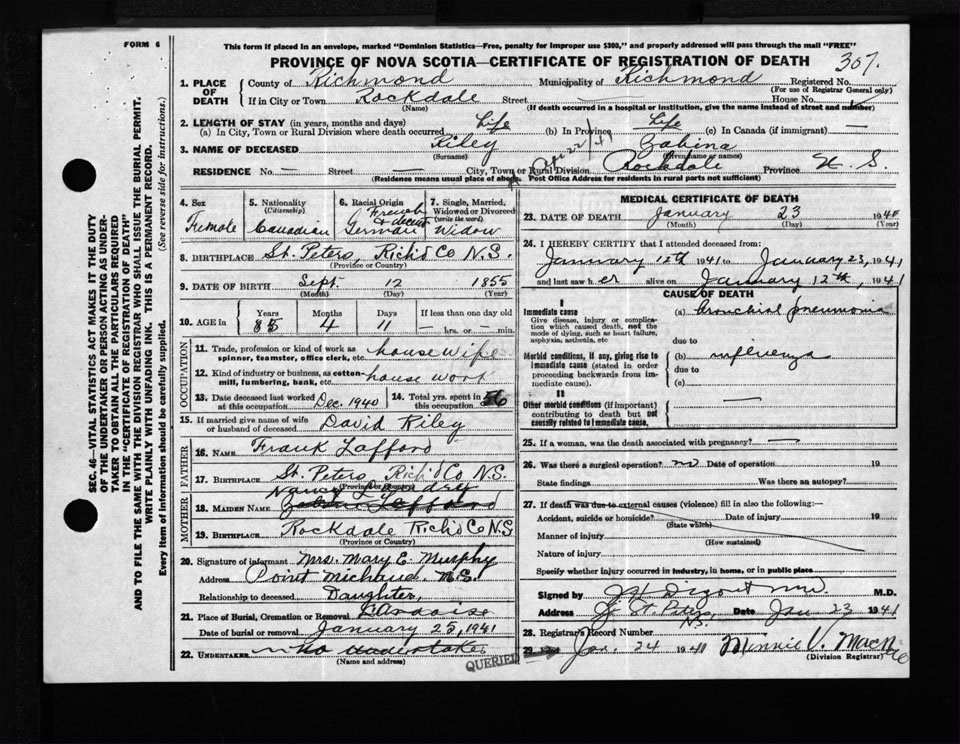 FORM 6
This form if placed in an envelope, marked "Dominion Statistics—Free, penalty for improper use $300," and properly addressed will pass through the mail "FREE"
PROVINCE OF NOVA SCOTIA—CERTIFICATE OF REGISTRATION OF DEATH 307.
1. PLACE OF DEATH
County of Richmond Municipality of Richmond Registered No.
(For use of Registrar General only)
If in City or Town Rockdale Street House No.
(Name) (If death occurred in a hospital or institution, give the name instead of street and number)
2. LENGTH OF STAY (in years, months and days)
(a) In City, Town or Rural Division where death occurred Life (b) In Province Life (c) In Canada (if immigrant) —
3. NAME OF DECEASED Riley Zabina
(Surname) (Given name or names)
RESIDENCE No. — Street — City, Town or Rural Division Rockdale Province N. S.
(Residence means usual place of abode. Post Office Address for residents in rural parts not sufficient)
4. Sex Female
5. Nationality (Citizenship) Canadian
6. Racial Origin French & German descent
7. Single, Married, Widowed or Divorced (write the word) Widow
8. BIRTHPLACE St. Peters, Rich'd Co N.S.
(Province or Country)
9. DATE OF BIRTH Sept. 12 1855
(Month) (Day) (Year)
10. AGE in Years Months Days If less than one day old
85 4 11 — hrs. or — min.
OCCUPATION
11. Trade, profession or kind of work as spinner, teamster, office clerk, etc. housewife
12. Kind of industry or business, as cotton-mill, lumbering, bank, etc. house work
13. Date deceased last worked at this occupation Dec. 1940
14. Total yrs. spent in this occupation 56
15. If married give name of wife or husband of deceased David Riley
FATHER
16. NAME Frank Lafford
17. BIRTHPLACE St. Peters Rich'd Co N.S.
(Province or Country)
MOTHER
Nancy Landry
18. MAIDEN NAME
19. BIRTHPLACE Rockdale Rich'd Co N.S
(Province or Country)
20. Signature of informant Mrs. Mary E. Murphy
Address Point Michaud. N.S.
Relationship to deceased Daughter,
21. Place of Burial, Cremation or Removal L'Ardoise
Date of burial or removal January 25, 1941
22. UNDERTAKER no undertaker
(Name and address)
QUERIED
MEDICAL CERTIFICATE OF DEATH
23. DATE OF DEATH January 23 1940
(Month) (Day) (Year)
24. I HEREBY CERTIFY that I attended deceased from:
January 12th 1941 to January 23, 1941
and last saw her alive on January 12th, 1941
CAUSE OF DEATH
I
Immediate cause
Give disease, injury or complication which caused death, not the mode of dying, such as heart failure, asphyxia, asthenia, etc
(a) bronchial pneumonia
due to
Morbid conditions, if any, giving rise to immediate cause (stated in order proceeding backwards from immediate cause).
(b) influenza
due to
(c)
II
Other morbid conditions (if important) contributing to death but not causally related to immediate cause. —
25. If a woman, was the death associated with pregnancy? —
26. Was there a surgical operation? no Date of operation 19
State findings Was there an autopsy?
27. If death was due to external causes (violence) fill in also the following:
Accident, suicide or homicide? Date of injury 19
(State which)
Manner of injury
(How sustained)
Nature of injury
Specify whether injury occurred in industry, in home, or in public place
Signed by M.D.
Address St. Peters, N.S. Date Jan 23 1941
28. Registrar's Record Number
29. Jan. 24 1940 Minnie V.
(Division Registrar)
SEC. 46—VITAL STATISTICS ACT MAKES IT THE DUTY
OF THE UNDERTAKER OR PERSON ACTING AS UNDER-
TAKER TO OBTAIN ALL THE PARTICULARS REQUIRED
IN THE "CERTIFICATE OF REGISTRATION OF DEATH"
AND TO FILE THE SAME WITH THE DIVISION REGISTRAR WHO SHALL ISSUE THE BURIAL PERMIT.
WRITE PLAINLY WITH UNFADING INK. THIS IS A PERMANENT RECORD.
Every item of information should be carefully supplied. (See reverse side for instructions.)